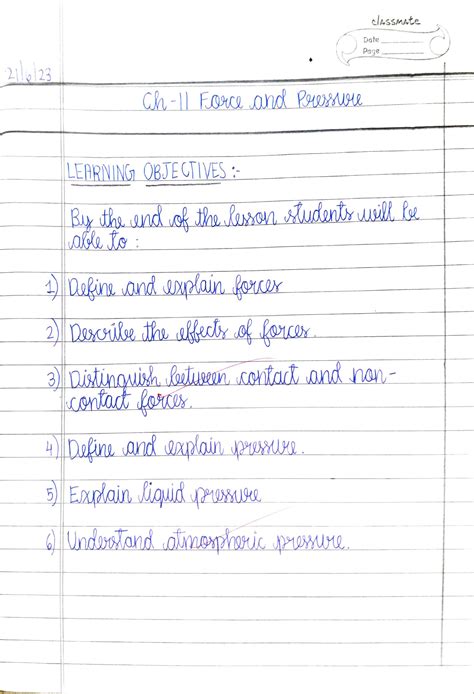 classmate
Date
Page
21/6/23
Ch-11 Force and Pressure
LEARNING OBJECTIVES :-
By the end of the lesson students will be
able to :
1) Define and explain forces
2) Describe the effects of forces.
3) Distinguish between contact and non-
contact forces.
4) Define and explain pressure.
5) Explain liquid pressure
6) Understand atmospheric pressure.